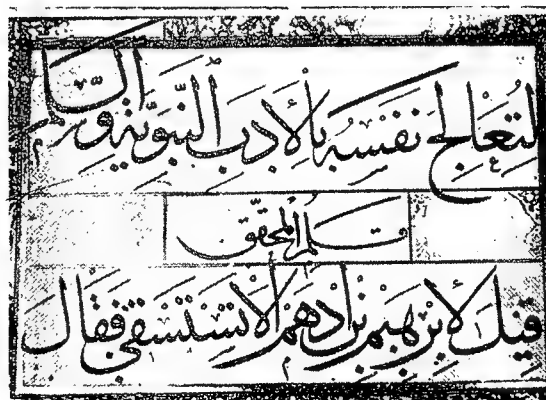 لِتُعَالِجَ نَفْسَهُ بِالْأَدَبِ النَّبَوِيَّةِ
قلم المحقّق
قِيلَ لِإِبْرٰهِيمَ بْنِ أَدْهَمَ أَلَا تَسْتَسْقِي فَقَالَ